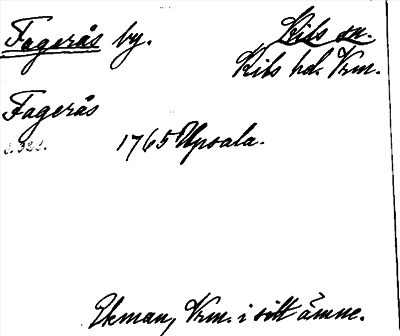 Fagerås by. Kils sn.
Kils hd. Vrm.
Fagerås
s. 321.
1765 Upsala.
Ekman, Vrm. i sitt ämne.